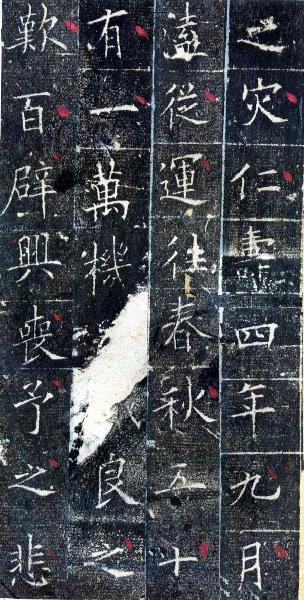 之灾仁壽四年九月
溘從運往春秋五十
有一萬機良之
歎百辟興喪予之悲